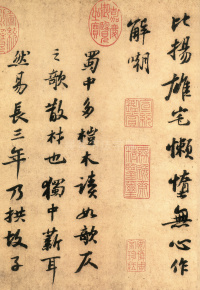 比揚雄宅懶惰無心作
解嘲
蜀中多榿木讀如欹仄
之欹散材也獨中薪耳
然易長三年乃拱故子